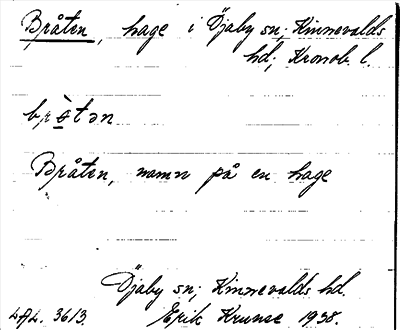 Bråten, hage i Öjaby sn; Kinnevalds
hd; Kronob. l.
brò̱tən
Bråten, namn på en hage
Öjaby sn; Kinnevalds hd.
LAL. 3613. Erik Krunse 1938.